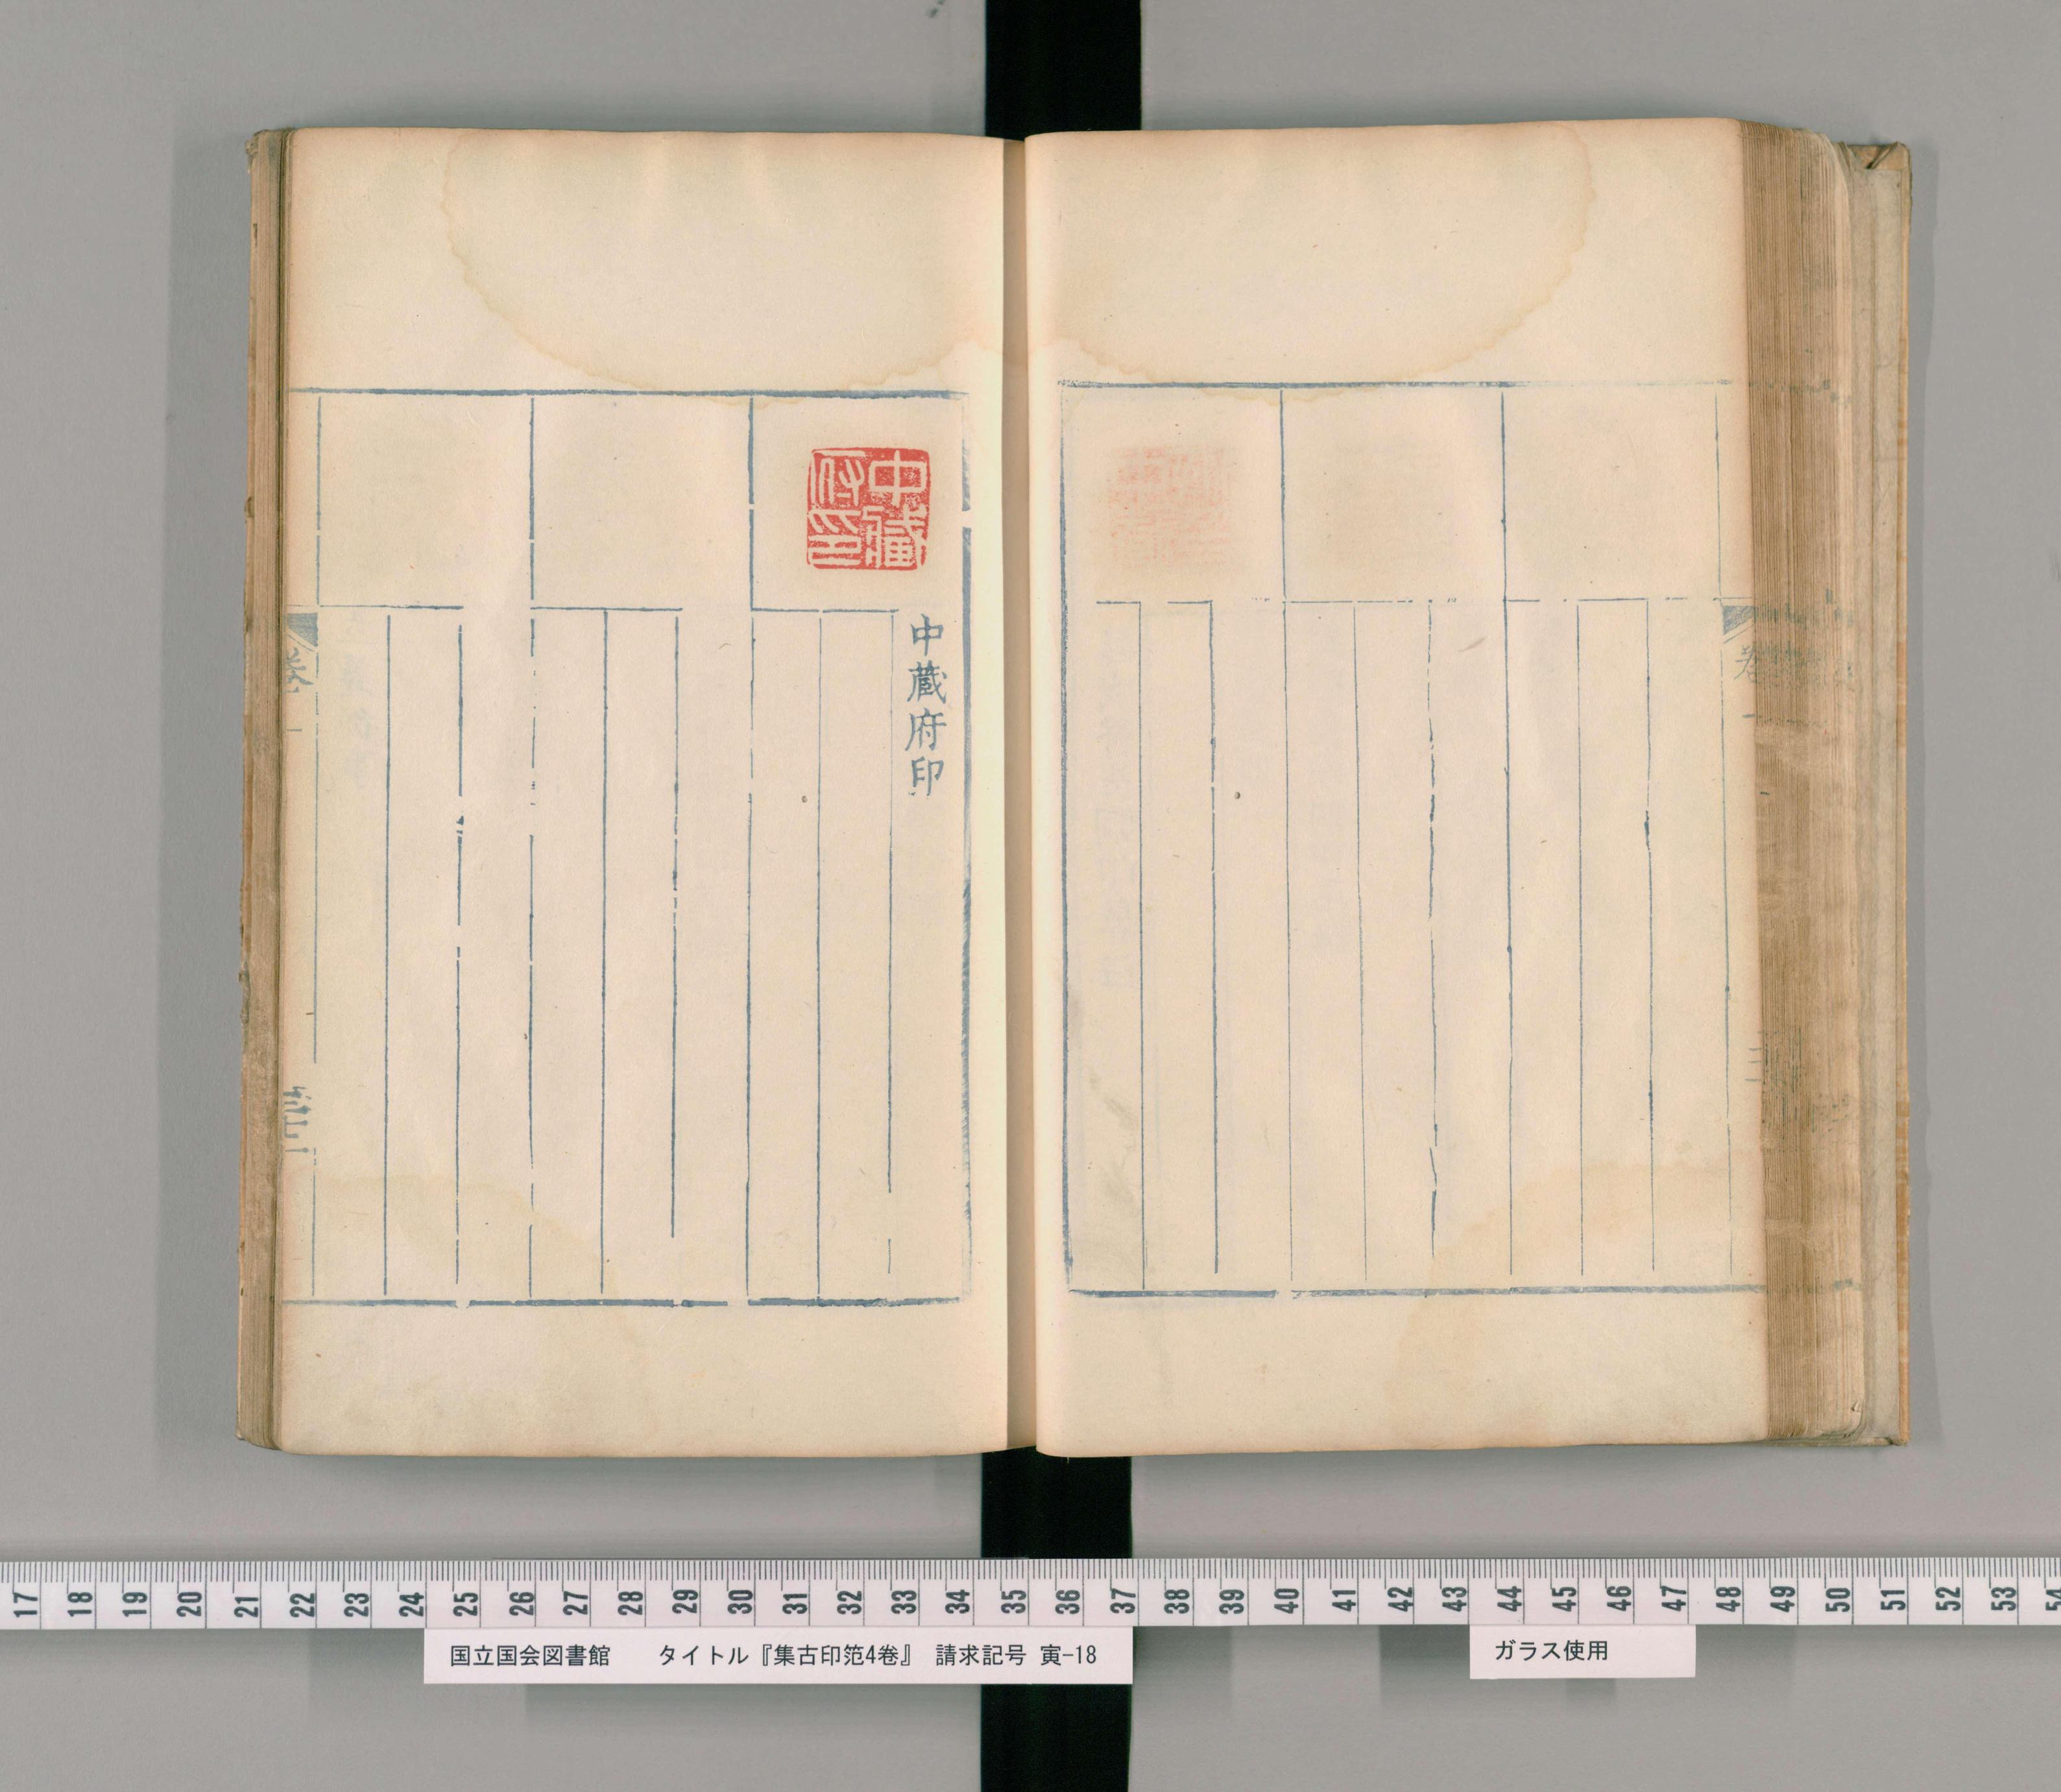 中藏
府印
中蔵府印
卷一
卷一
17 18 19 20 21 22 23 24 25 26 27 28 29 30 31 32 33 34 35 36 37 38 39 40 41 42 43 44 45 46 47 48 49 50 51 52 53 54
国立国会図書館 タイトル『集古印笵4巻』 請求記号 寅-18
ガラス使用